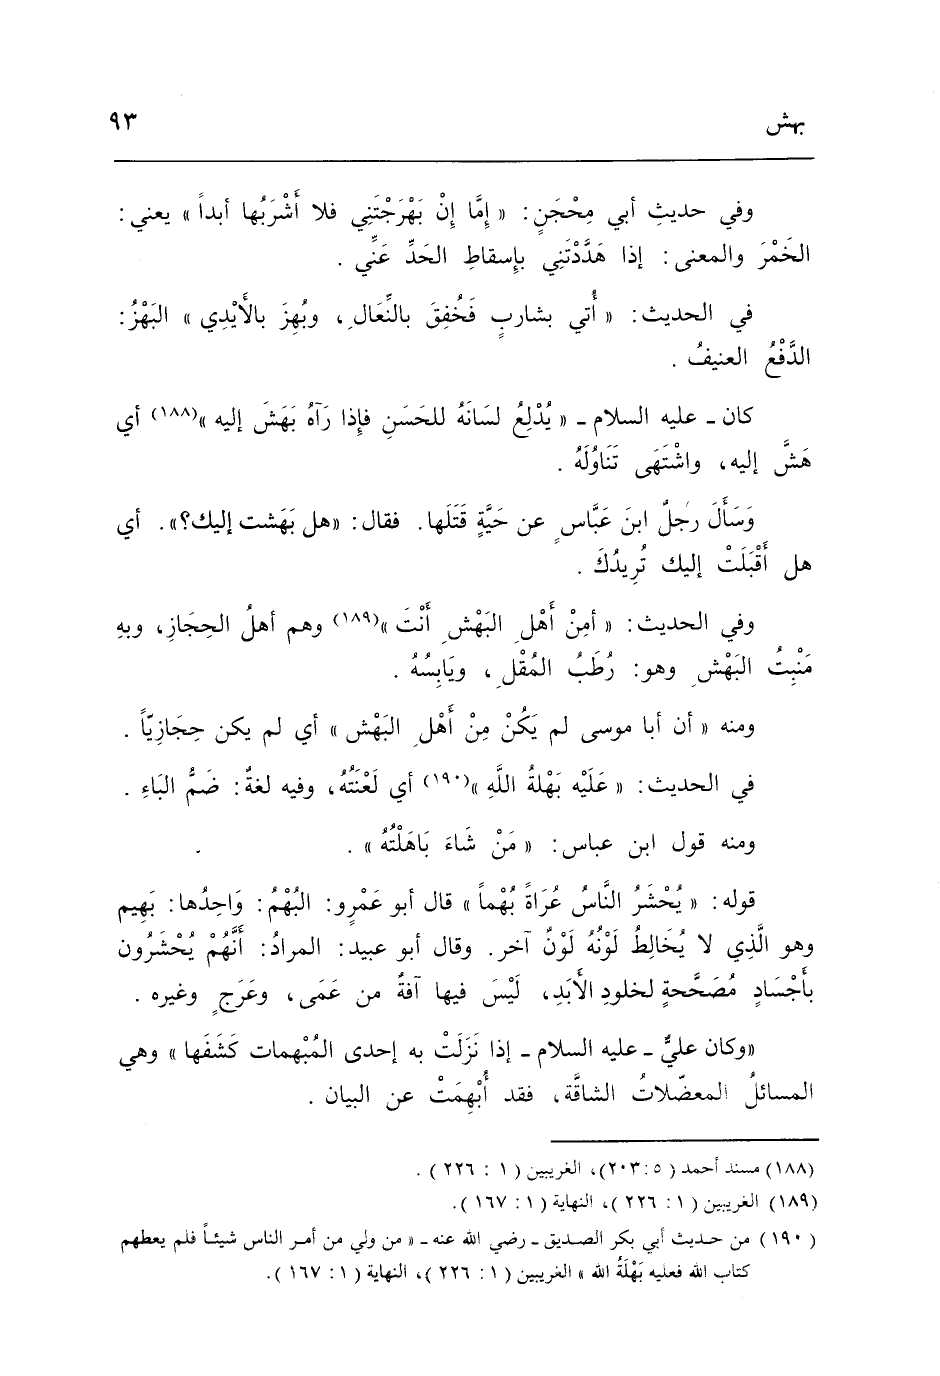 بهش ٩٣
وفي حديثِ أبي مِحْجَنٍ: « إمَّا إنْ بَهْرَجْتَنِي فلا أَشْرَبُها أبداً » يعني:
الخَمْرَ والمعنى: إذا هَدَّدْتَنِي بإسقاطِ الحَدِّ عَنِّي .
في الحديث: « أُتي بشاربٍ فَخُفِقَ بالنِّعَالِ، وبُهِزَ بالأَيْدِي » البَهْزُ:
الدَّفْعُ العنيفُ .
كان ـ عليه السلام ـ « يُدْلِعُ لسَانَهُ للحَسَنِ فإذا رَآهُ بَهَشَ إليه »(١٨٨) أي
هَشَّ إليه، واشْتَهَى تَنَاوُلَهُ .
وَسَأَلَ رجُلٌ ابنَ عَبَّاسٍ عن حَيَّةٍ قَتَلَها. فقال: «هل بَهَشت إليك؟». أي
هل أَقْبَلَتْ إليك تُرِيدُكَ .
وفي الحديث: « أمِنْ أَهْلِ البَهْشِ أَنْتَ »(١٨٩) وهم أهلُ الحِجَازِ، وبهِ
مَنْبِتُ البَهْشِ وهو: رُطَبُ المُقْلِ، ويَابِسُهُ .
ومنه « أن أبا موسى لم يَكُنْ مِنْ أَهْلِ البَهْش » أي لم يكن حِجَازِيّاً .
في الحديث: « عَلَيْه بَهْلةُ اللَّهِ »(١٩٠) أي لَعْنَتُهُ، وفيه لغةٌ: ضَمُّ البَاءِ .
ومنه قول ابن عباس: « مَنْ شَاءَ بَاهَلْتُهُ » .
قوله: « يُحْشَرُ النَّاسُ عُرَاةً بُهْماً » قال أبو عَمْرٍو: البُهْمُ: وَاحِدُها: بَهِيم
وهو الَّذِي لا يُخَالِطُ لَوْنُهُ لَوْنٌ آخر. وقال أبو عبيد: المرادُ: أَنَّهُمْ يُحْشَرُون
بأَجْسَادٍ مُصَحَّحةٍ لخلودِ الأَبَدِ، لَيْسَ فيها آفةٌ من عَمَى، وعَرَجٍ وغيره .
«وكان عليٌّ ـ عليه السلام ـ إذا نَزَلَتْ به إحدى المُبْهمات كَشَفَها » وهي
المسائلُ المعضّلاتُ الشاقَّة، فقد أُبْهِمَتْ عن البيان .
(١٨٨) مسند أحمد ( ٥ :٢٠٣)، الغريبين ( ١ : ٢٢٦ ) .
(١٨٩) الغريبين ( ١ : ٢٢٦ )، النهاية ( ١ : ١٦٧ ).
( ١٩٠ ) من حديث أبي بكر الصديق ـ رضي الله عنه ـ « من ولي من أمر الناس شيئاً فلم يعطهم
كتاب الله فعليه بَهْلَةُ الله » الغريبين ( ١ : ٢٢٦ )، النهاية ( ١ : ١٦٧ ).